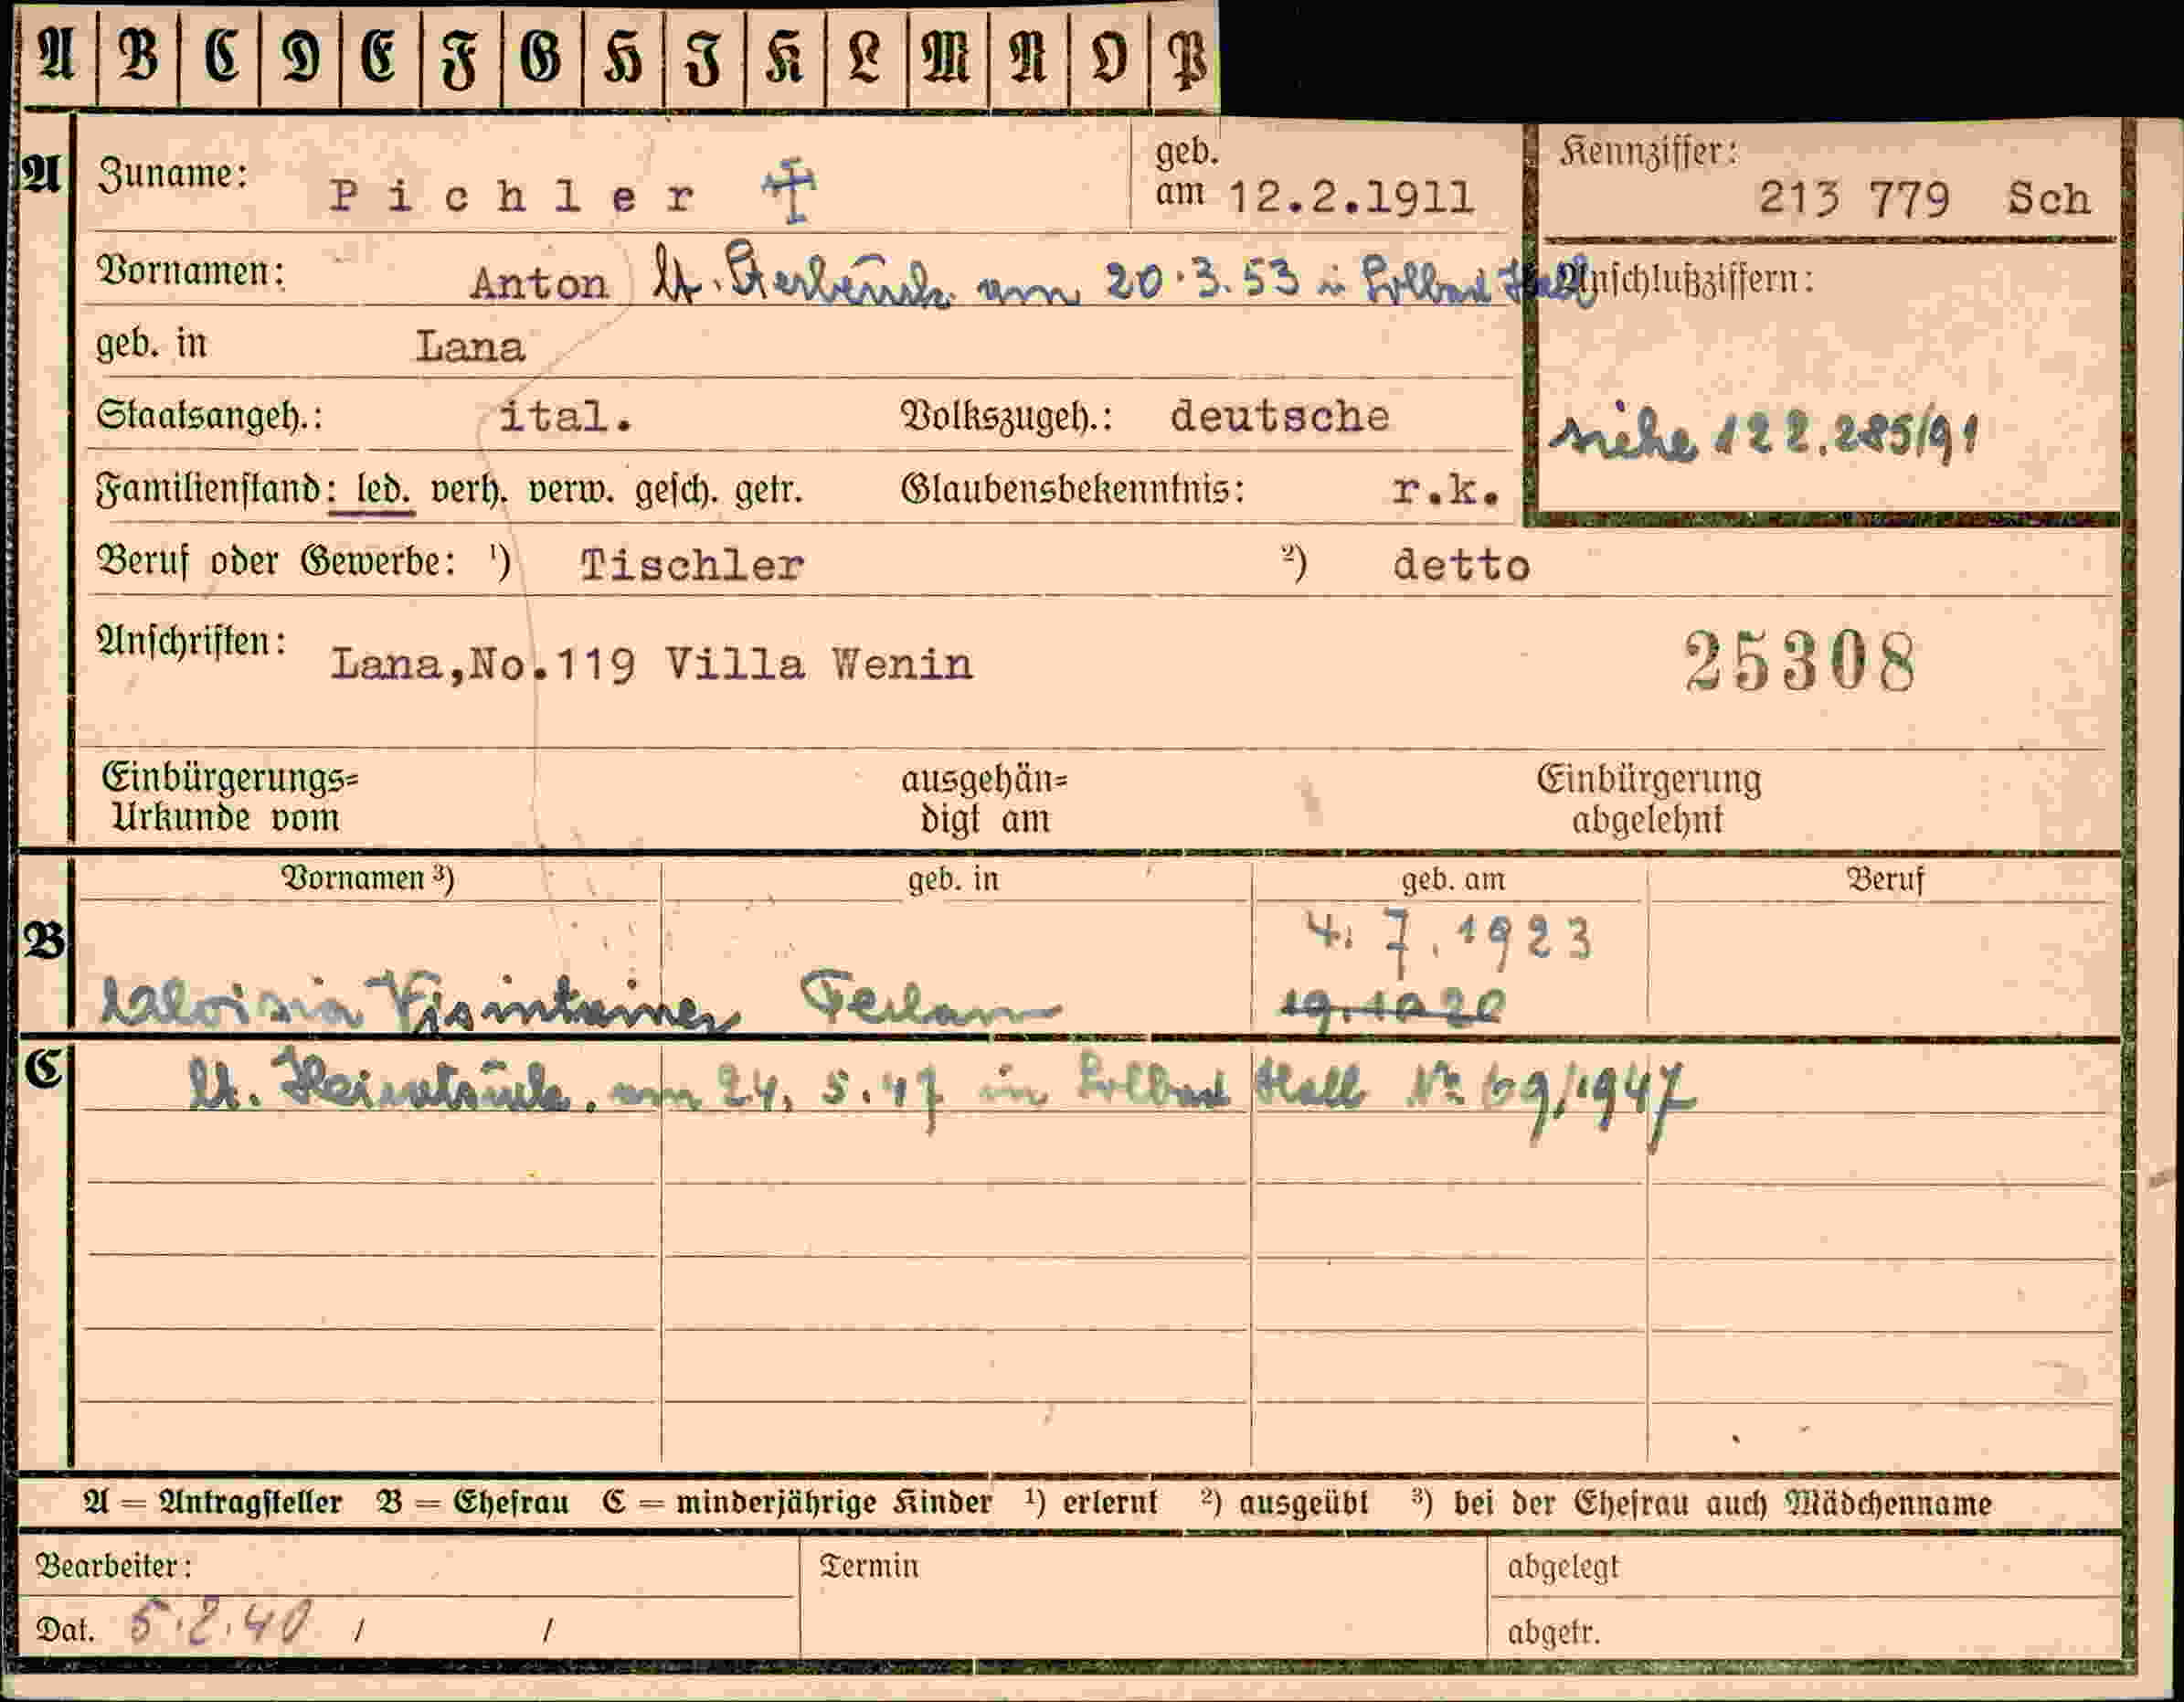 A B C D E F G H I K L M N O P
A Zuname: Pichler geb. am 12.2.1911 Kennziffer: 213 779 Sch
Vornamen: Anton lt. Sterbeurk. am 20.3.53 in Solbad Hall Anschlußziffern:
geb. in Lana
Staatsangeh.: ital. Volkszugeh.: deutsche siehe 122.285/91
Familienstand: led. verh. verw. gesch. getr. Glaubensbekenntnis: r.k.
Beruf oder Gewerbe: ¹) Tischler ²) detto
Anschriften: Lana,No.119 Villa Wenin 25308
Einbürgerungs= ausgehän= Einbürgerung
Urkunde vom digt am abgelehnt
Vornamen ³) geb. in geb. am Beruf
B 4.7.1923
Aloisia Visintainer Terlan 19.10.20
C lt. Heiratsurk. am 24.5.47 in Solbad Hall No 69/1947
A = Antragsteller B = Ehefrau C = minderjährige Kinder ¹) erlernt ²) ausgeübt ³) bei der Ehefrau auch Mädchenname
Bearbeiter: Termin abgelegt
Dat. 5.2.40 / / abgetr.